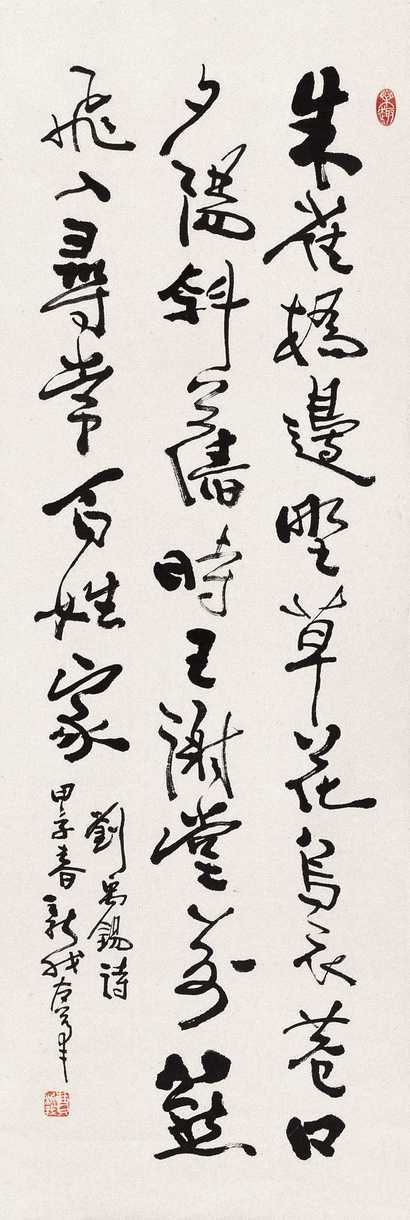 朱雀橋邊野草花烏衣巷口
夕陽斜舊時王謝堂前燕
飛入尋常百姓家
劉禹錫詩
甲子春